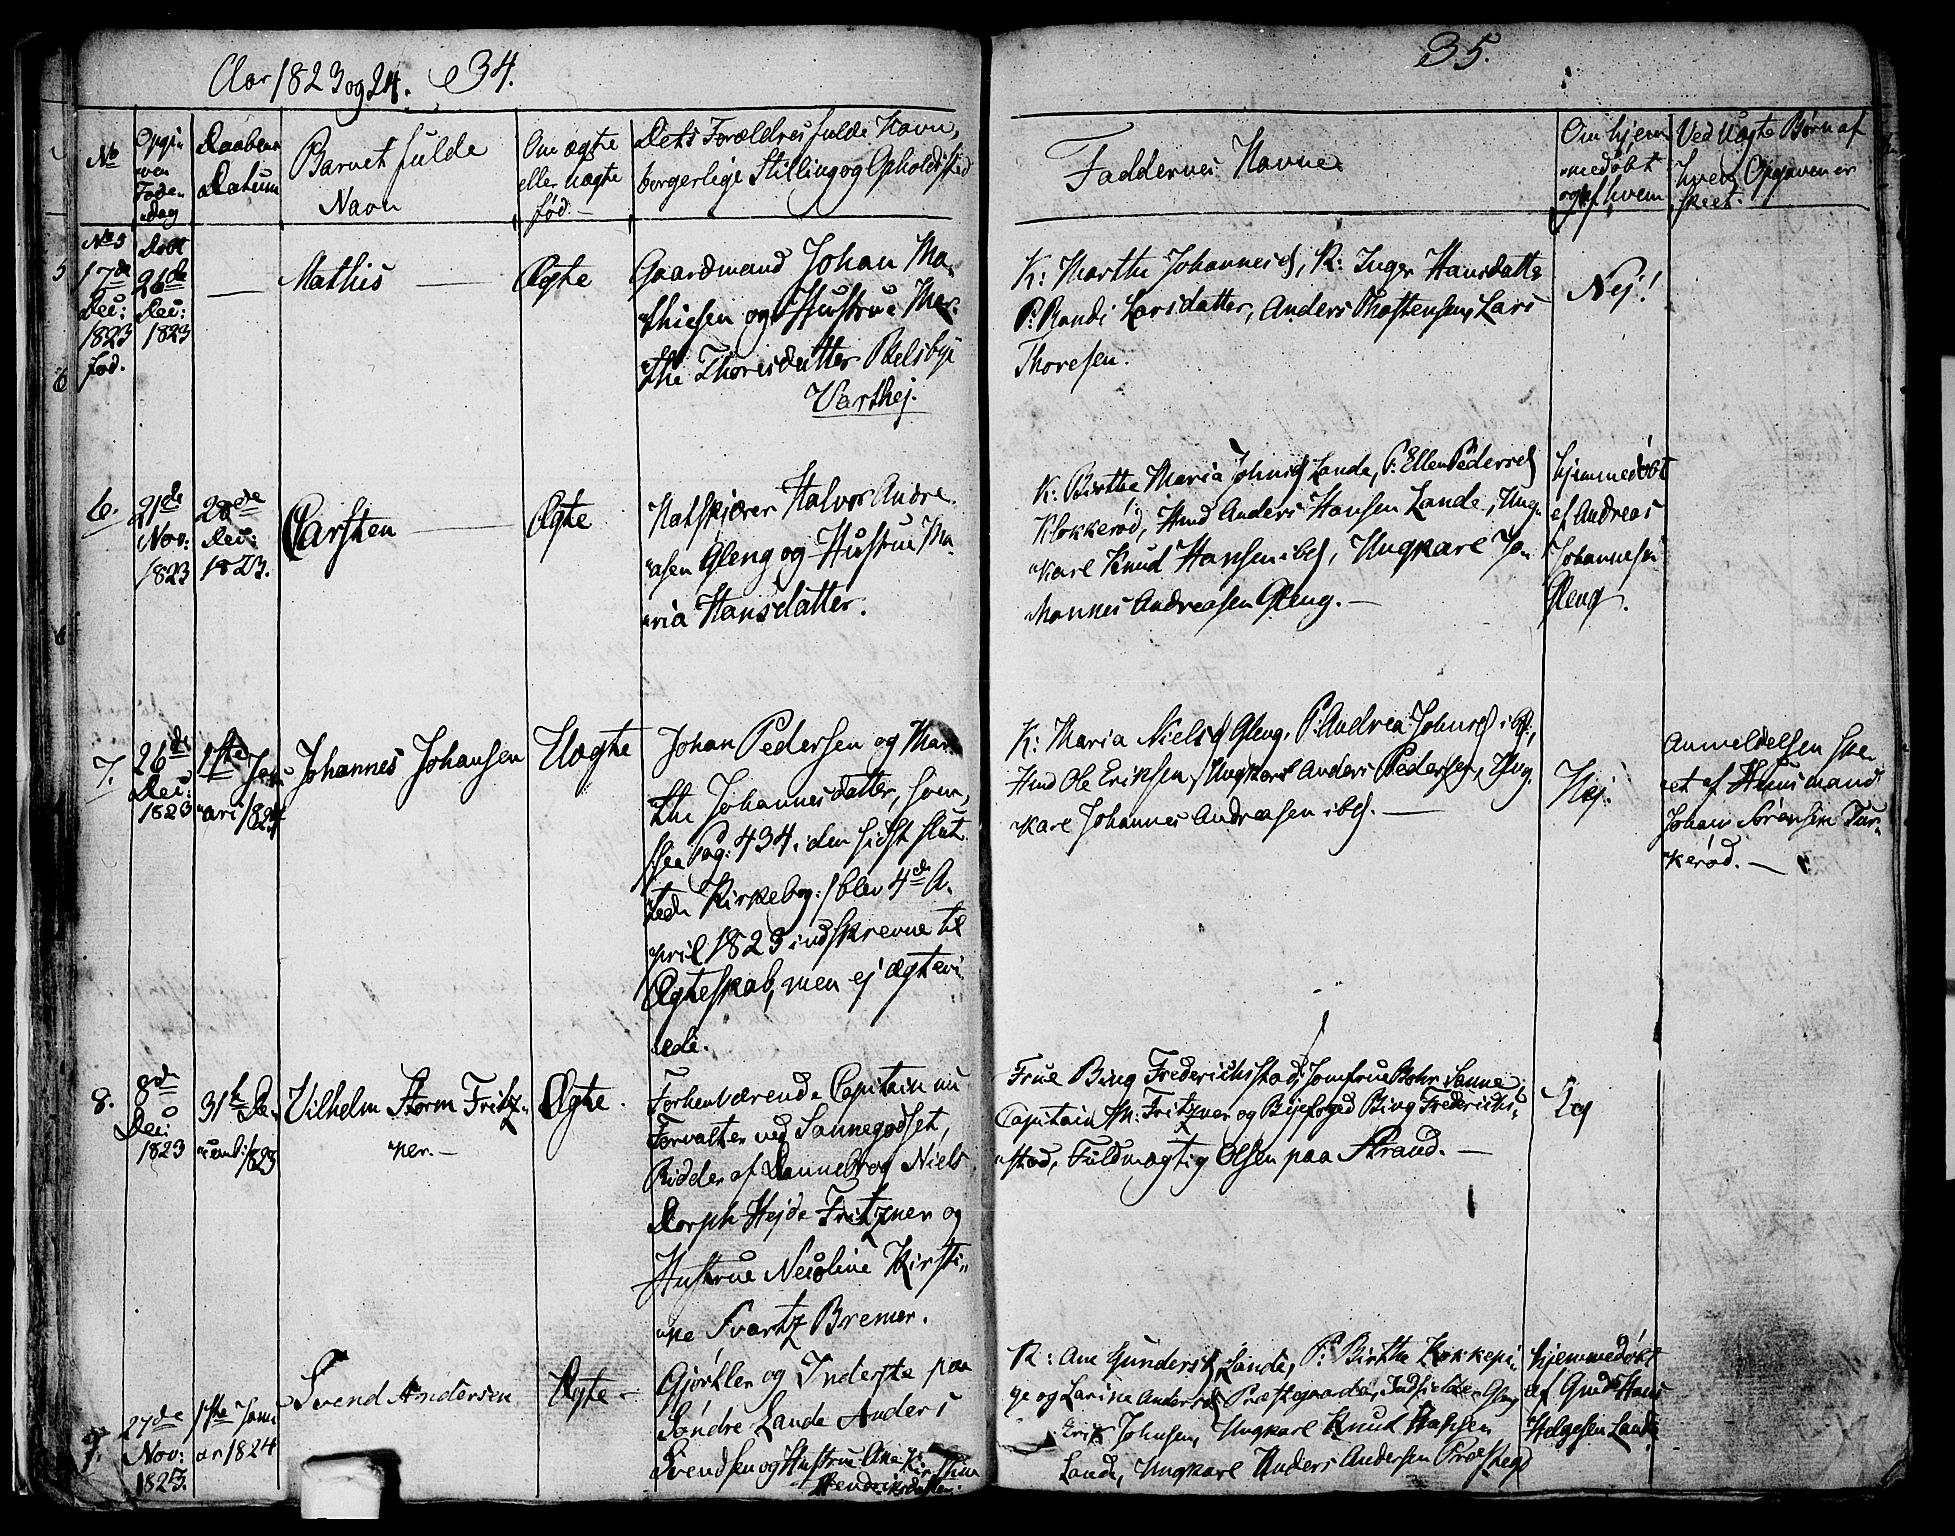 Aar 1823 og 24. 34.
No
Opgiven Føde-dag
Daabens Datum
Barnet fulde
Navn
Om ægte
eller uægte
fød.
Dets Forældres fulde Navn,
borgerlige Stilling og Opholdssted
No 5
17de
Dec:
1823
fød.
Døbt
26de
Dec:
1823
Mathis
Ægte
Gaardmand Johan Ma-
thiesen og Hustrue Mar-
the Thorisdatter
Varthej.
6.
21de
Nov:
1823
28de
Dec:
1823.
Carsten
Ægte
Halvor Andre-
asen Gleng og Hustrue Ma-
ria Hansdatter.
7.
26de
Dec:
1823
1ste Janu-
ari 1824
Johannes Johansen
Uægte
Johan Pedersen og Mar-
the Johannesdatter, som,
see Pag: 434 i den sidst slut-
tede Kirkebog: / blev 4de A-
pril 1823 indskrevne til
Ægteskab, men ej ægtevi-
ede.
8.
8de
Dec:
1823
31te De-
cemb: 1823
Vilhelm Storm Fritz-
ner.
Ægte.
Forhenværende Capitain nu
Forvalter ved Sannegodset,
Ridder af Dannebrog Niels
Dorph Hejde Fritzner og
Hustrue Nicoline Kirsti-
ne Svartz Bremer.
9.
27de
Nov:
1823.
1ste Janu
ar 1824
Svend Andersen
Ægte
Gjørtler og Inderste paa
Søndre Lande Anders
Svendsen og Hustrue Ane
Hendriksdatter.
35.
Faddernes Navne
Om hjem-
medøbt
og af hvem
Ved Uægte Børn af
hvem Opgaven er
skeet.
K: Marthe Johannesd, K: Inger Hansdatte
P: Randi Larsdatter, Anders Thostensen, Lars
Thoresen.
Nej!
K: Birthe Maria Johnsd Lande, P: Ellen Pedersd
Klokkerød, Hmd Anders Hansen Lande, Ung-
karl Knud Hansen ibd, Ungkarl Jo-
hannes Andreasen Gleng.
hjemmedøbt
af Andreas
Johannesen
Gleng.
K: Maria Nielsd Gleng, P: Andrea Johnsd ibd,
Hmd Ole Eriksen, Ungkarl Anders Pedersen, Ung-
karl Johannes Andreasen ibd.
Nej.
Anmeldelsen ske-
et af Huusmand
Johan Sørensen Tor-
kerød.
Frue Bing Frederichstad, Jomfrue Bohr Sanne,
Capitain Fritzner og Byefoged Bing Frederichs-
stad, Fuldmægtig Olsen paa Strand.
K: Ane Gundersd Lande, P: Birthe Kokkepi-
ge og Larine Andersd Præstegaarden,
Erik Johnsen, Ungkarl Knud Hansen
Lande, Ungkarl Anders Andersen Præstegd
hjemmedøbt
af Hans
Helgesen Lande